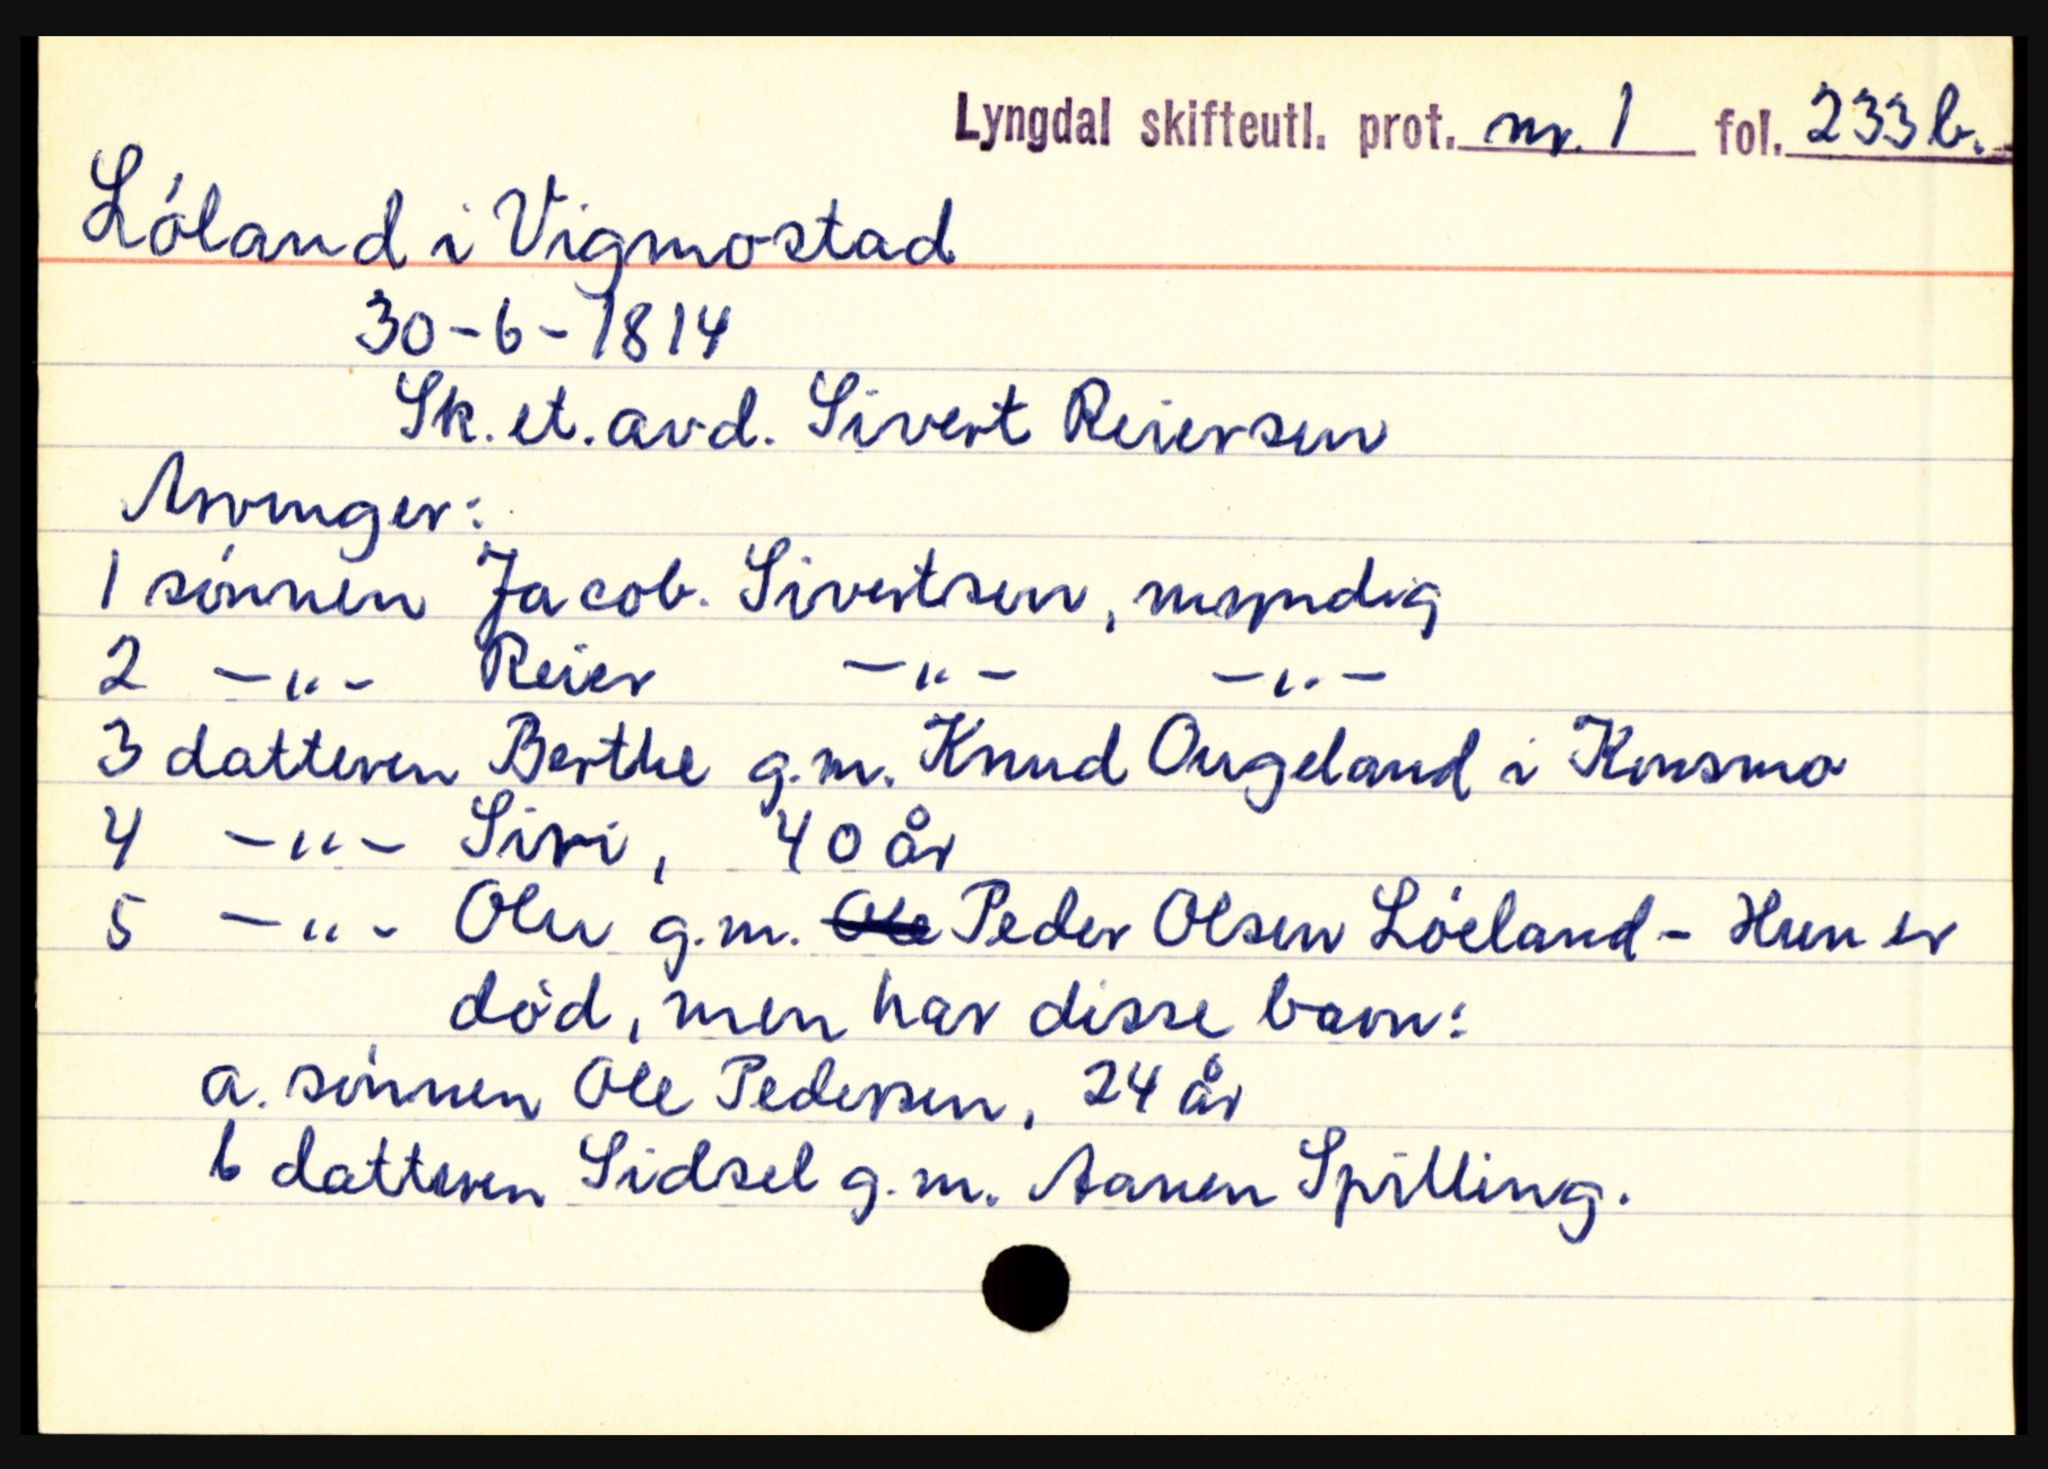 Lyngdal skifteutl. prot. nr. 1 fol. 233b.
Lóland i Vigmostad
30-6-1814
Sk. et. avd. Sivert Reiersen
Arvinger:
1 sónnen Jacob. Sivertsen, myndig
2 -"- Reier -"- -"-
3 datteren Berthe g.m. Knud Ougeland i Konsmo
4 -"- Siri, 40 år
5 -"- Olu g.m. Ole Peder Olsen Lóeland - Hun er
död, men har disse barn:
a. sónnen Ole Pedersen, 24 år
b datteren Sidsel g.m. Aanen Spilling.